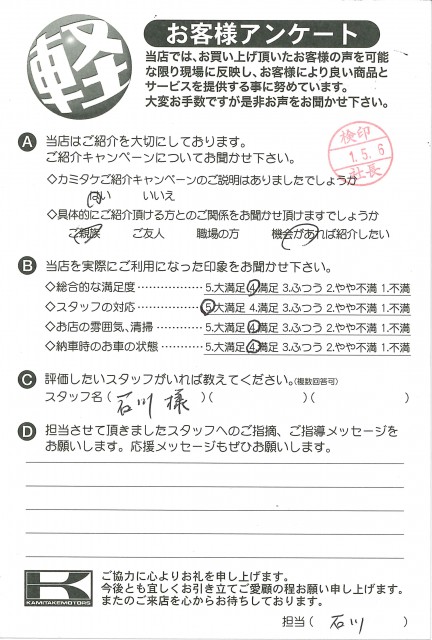 軽
お客様アンケート
当店では、お買い上げ頂いたお客様の声を可能
な限り現場に反映し、お客様により良い商品と
サービスを提供する事に努めています。
大変お手数ですが是非お声をお聞かせ下さい。
A 当店はご紹介を大切にしております。
ご紹介キャンペーンについてお聞かせ下さい。
検印
1.5.6
社長
◇カミタケご紹介キャンペーンのご説明はありましたでしょうか
はい いいえ
◇具体的にご紹介頂ける方とのご関係をお聞かせ頂けますでしょうか
ご親族 ご友人 職場の方 機会があれば紹介したい
B 当店を実際にご利用になった印象をお聞かせ下さい。
◇総合的な満足度 ……………… 5.大満足 4.満足 3.ふつう 2.やや不満 1.不満
◇スタッフの対応 ……………… 5.大満足 4.満足 3.ふつう 2.やや不満 1.不満
◇お店の雰囲気、清掃 ………… 5.大満足 4.満足 3.ふつう 2.やや不満 1.不満
◇納車時のお車の状態 ………… 5.大満足 4.満足 3.ふつう 2.やや不満 1.不満
C 評価したいスタッフがいれば教えてください。(複数回答可)
スタッフ名( 石川様 )( )( )
D 担当させて頂きましたスタッフへのご指摘、ご指導メッセージを
お願いします。応援メッセージもぜひお願いします。
K
KAMITAKEMOTORS
ご協力に心よりお礼を申し上げます。
今後とも宜しくお引き立てご愛顧の程お願い申し上げます。
またのご来店を心からお待ちしております。
担当( 石川 )